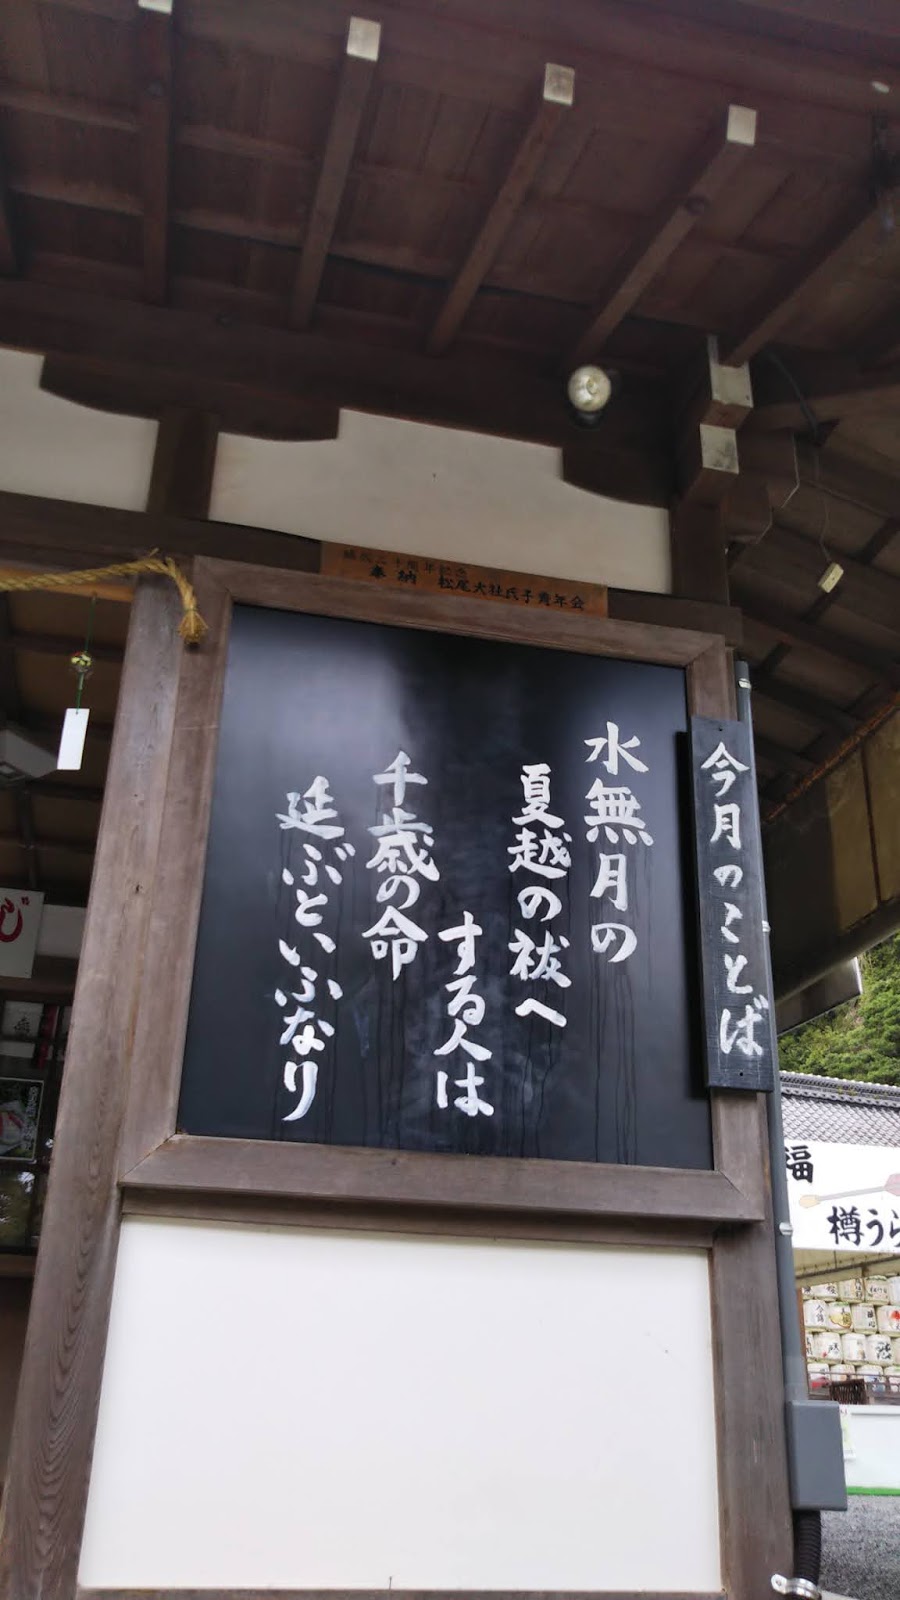 今月のことば
水無月の
夏越の祓へ
する人は
千歳の命
延ぶといふなり
奉納 松尾大社氏子青年会
福
樽うら